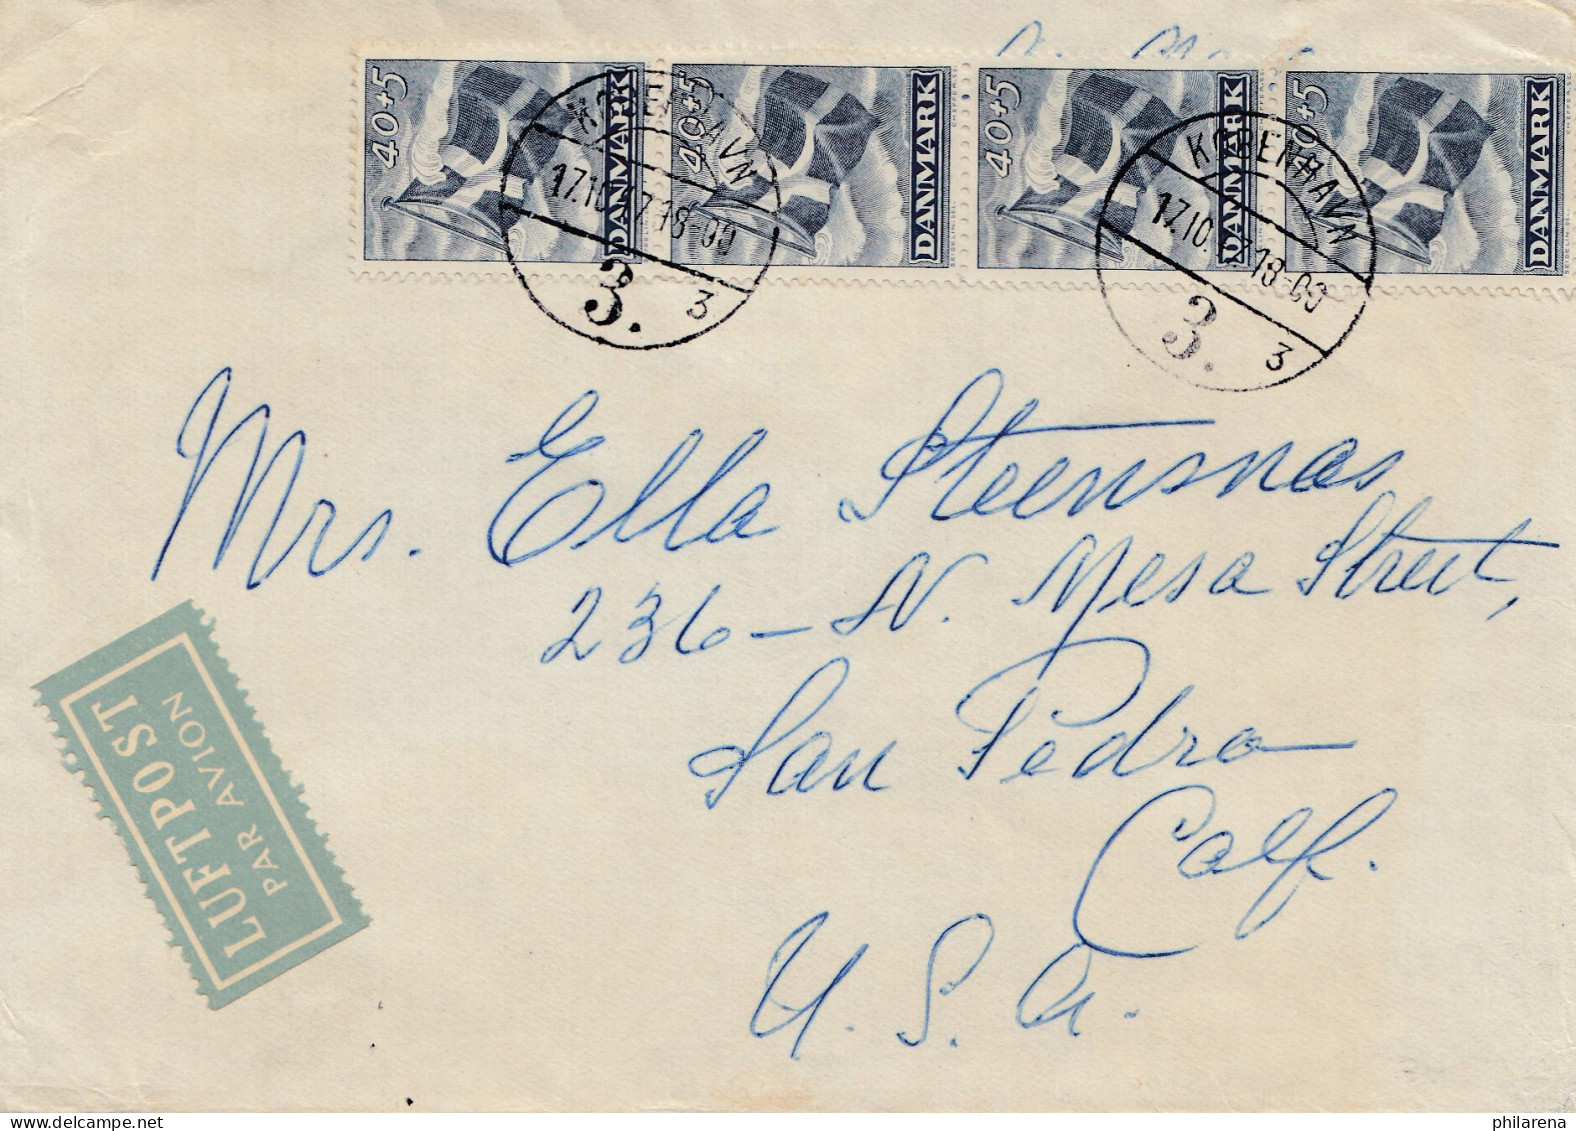 40+5 DANMARK
40+5 DANMARK
40+5 DANMARK
40+5 DANMARK
KØBENHAVN
17.10.47.18-00
3. 3
KØBENHAVN
17.10.47.18-00
3. 3
Mrs. Ella Steensnas
236 – N. Mesa Street,
San Pedro
Calf.
U. S. A.
LUFTPOST
PAR AVION
delcampe.net
philarena